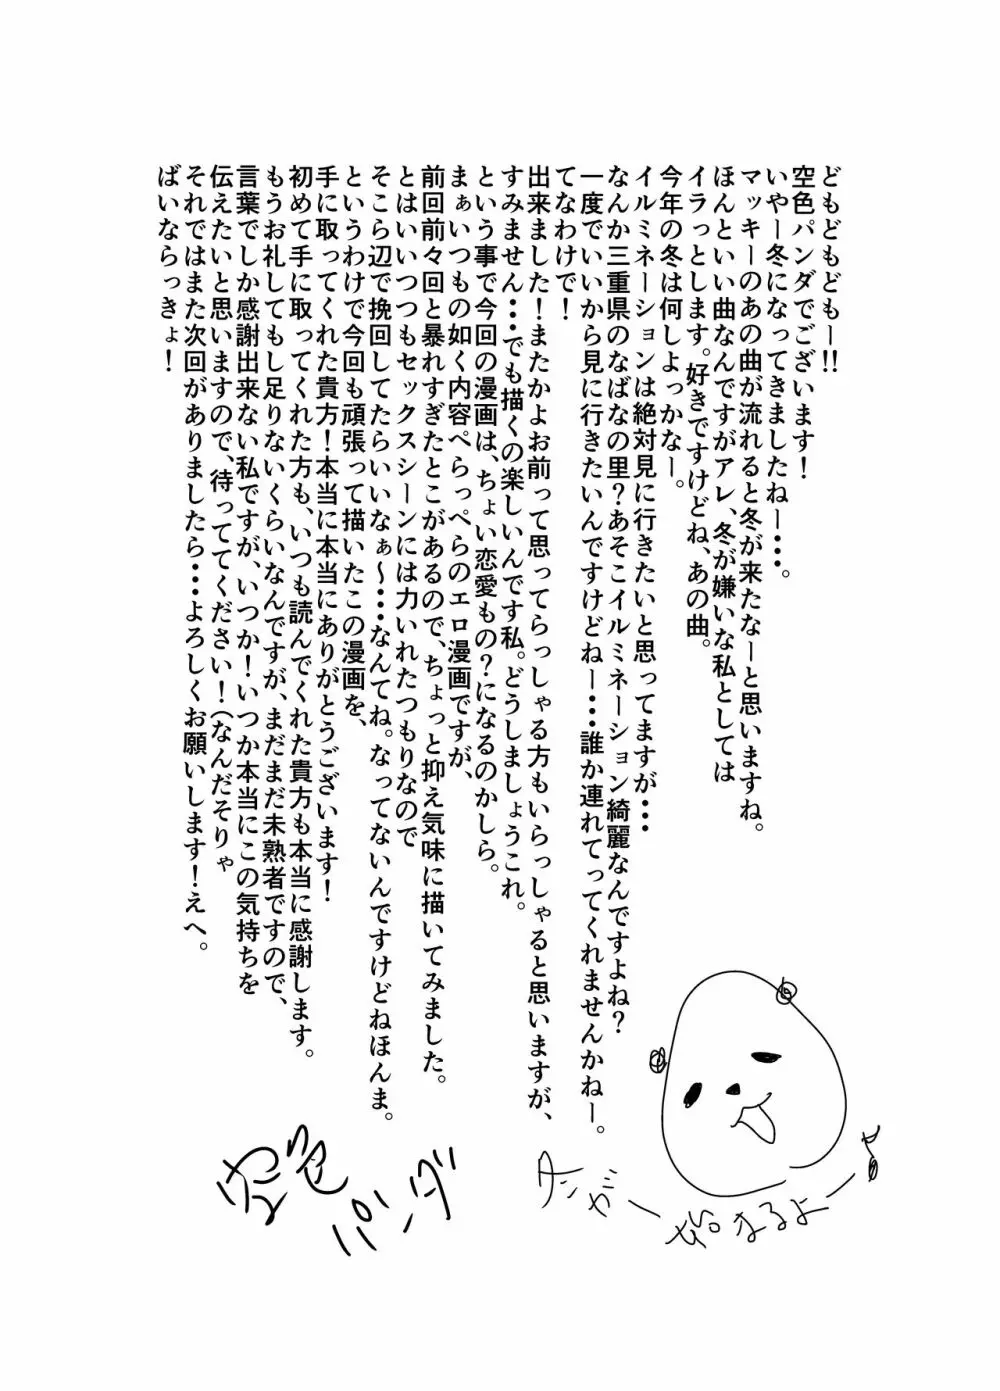 どもどもどもー!!
空色パンダでございます!
いやー冬になってきましたねー・・・。
マッキーのあの曲が流れると冬が来たなーと思いますね。
ほんといい曲なんですがアレ、冬が嫌いな私としては
イラっとします。好きですけどね、あの曲。
今年の冬は何しよっかなー。
イルミネーションは絶対見に行きたいと思ってますが・・・
なんか三重県のなばなの里?あそこイルミネーション綺麗なんですよね?
一度でいいから見に行きたいんですけどねー・・・誰か連れてってくれませんかねー。
てなわけで!
出来ました!またかよお前って思ってらっしゃる方もいらっしゃると思いますが、
すみません・・・でも描くの楽しいんです私。どうしましょうこれ。
という事で今回の漫画は、ちょい恋愛もの?になるのかしら。
まぁいつもの如く内容ぺらっぺらのエロ漫画ですが、
前回前々回と暴れすぎたとこがあるので、ちょっと抑え気味に描いてみました。
とはいいつつもセックスシーンには力いれたつもりなので
そこら辺で挽回してたらいいなぁ〜・・・なんてね。なってないんですけどねほんま。
というわけで今回も頑張って描いたこの漫画を、
手に取ってくれた貴方!本当に本当にありがとうございます!
初めて手に取ってくれた方も、いつも読んでくれた貴方も本当に感謝します。
もうお礼してもし足りないくらいなんですが、まだまだ未熟者ですので、
言葉でしか感謝出来ない私ですが、いつか!いつか本当にこの気持ちを
伝えたいと思いますので、待っててください!(なんだそりゃ
それではまた次回がありましたら・・・よろしくお願いします!えへ。
ばいならっきょ!
冬がー始まるよー♪
空色
パンダ